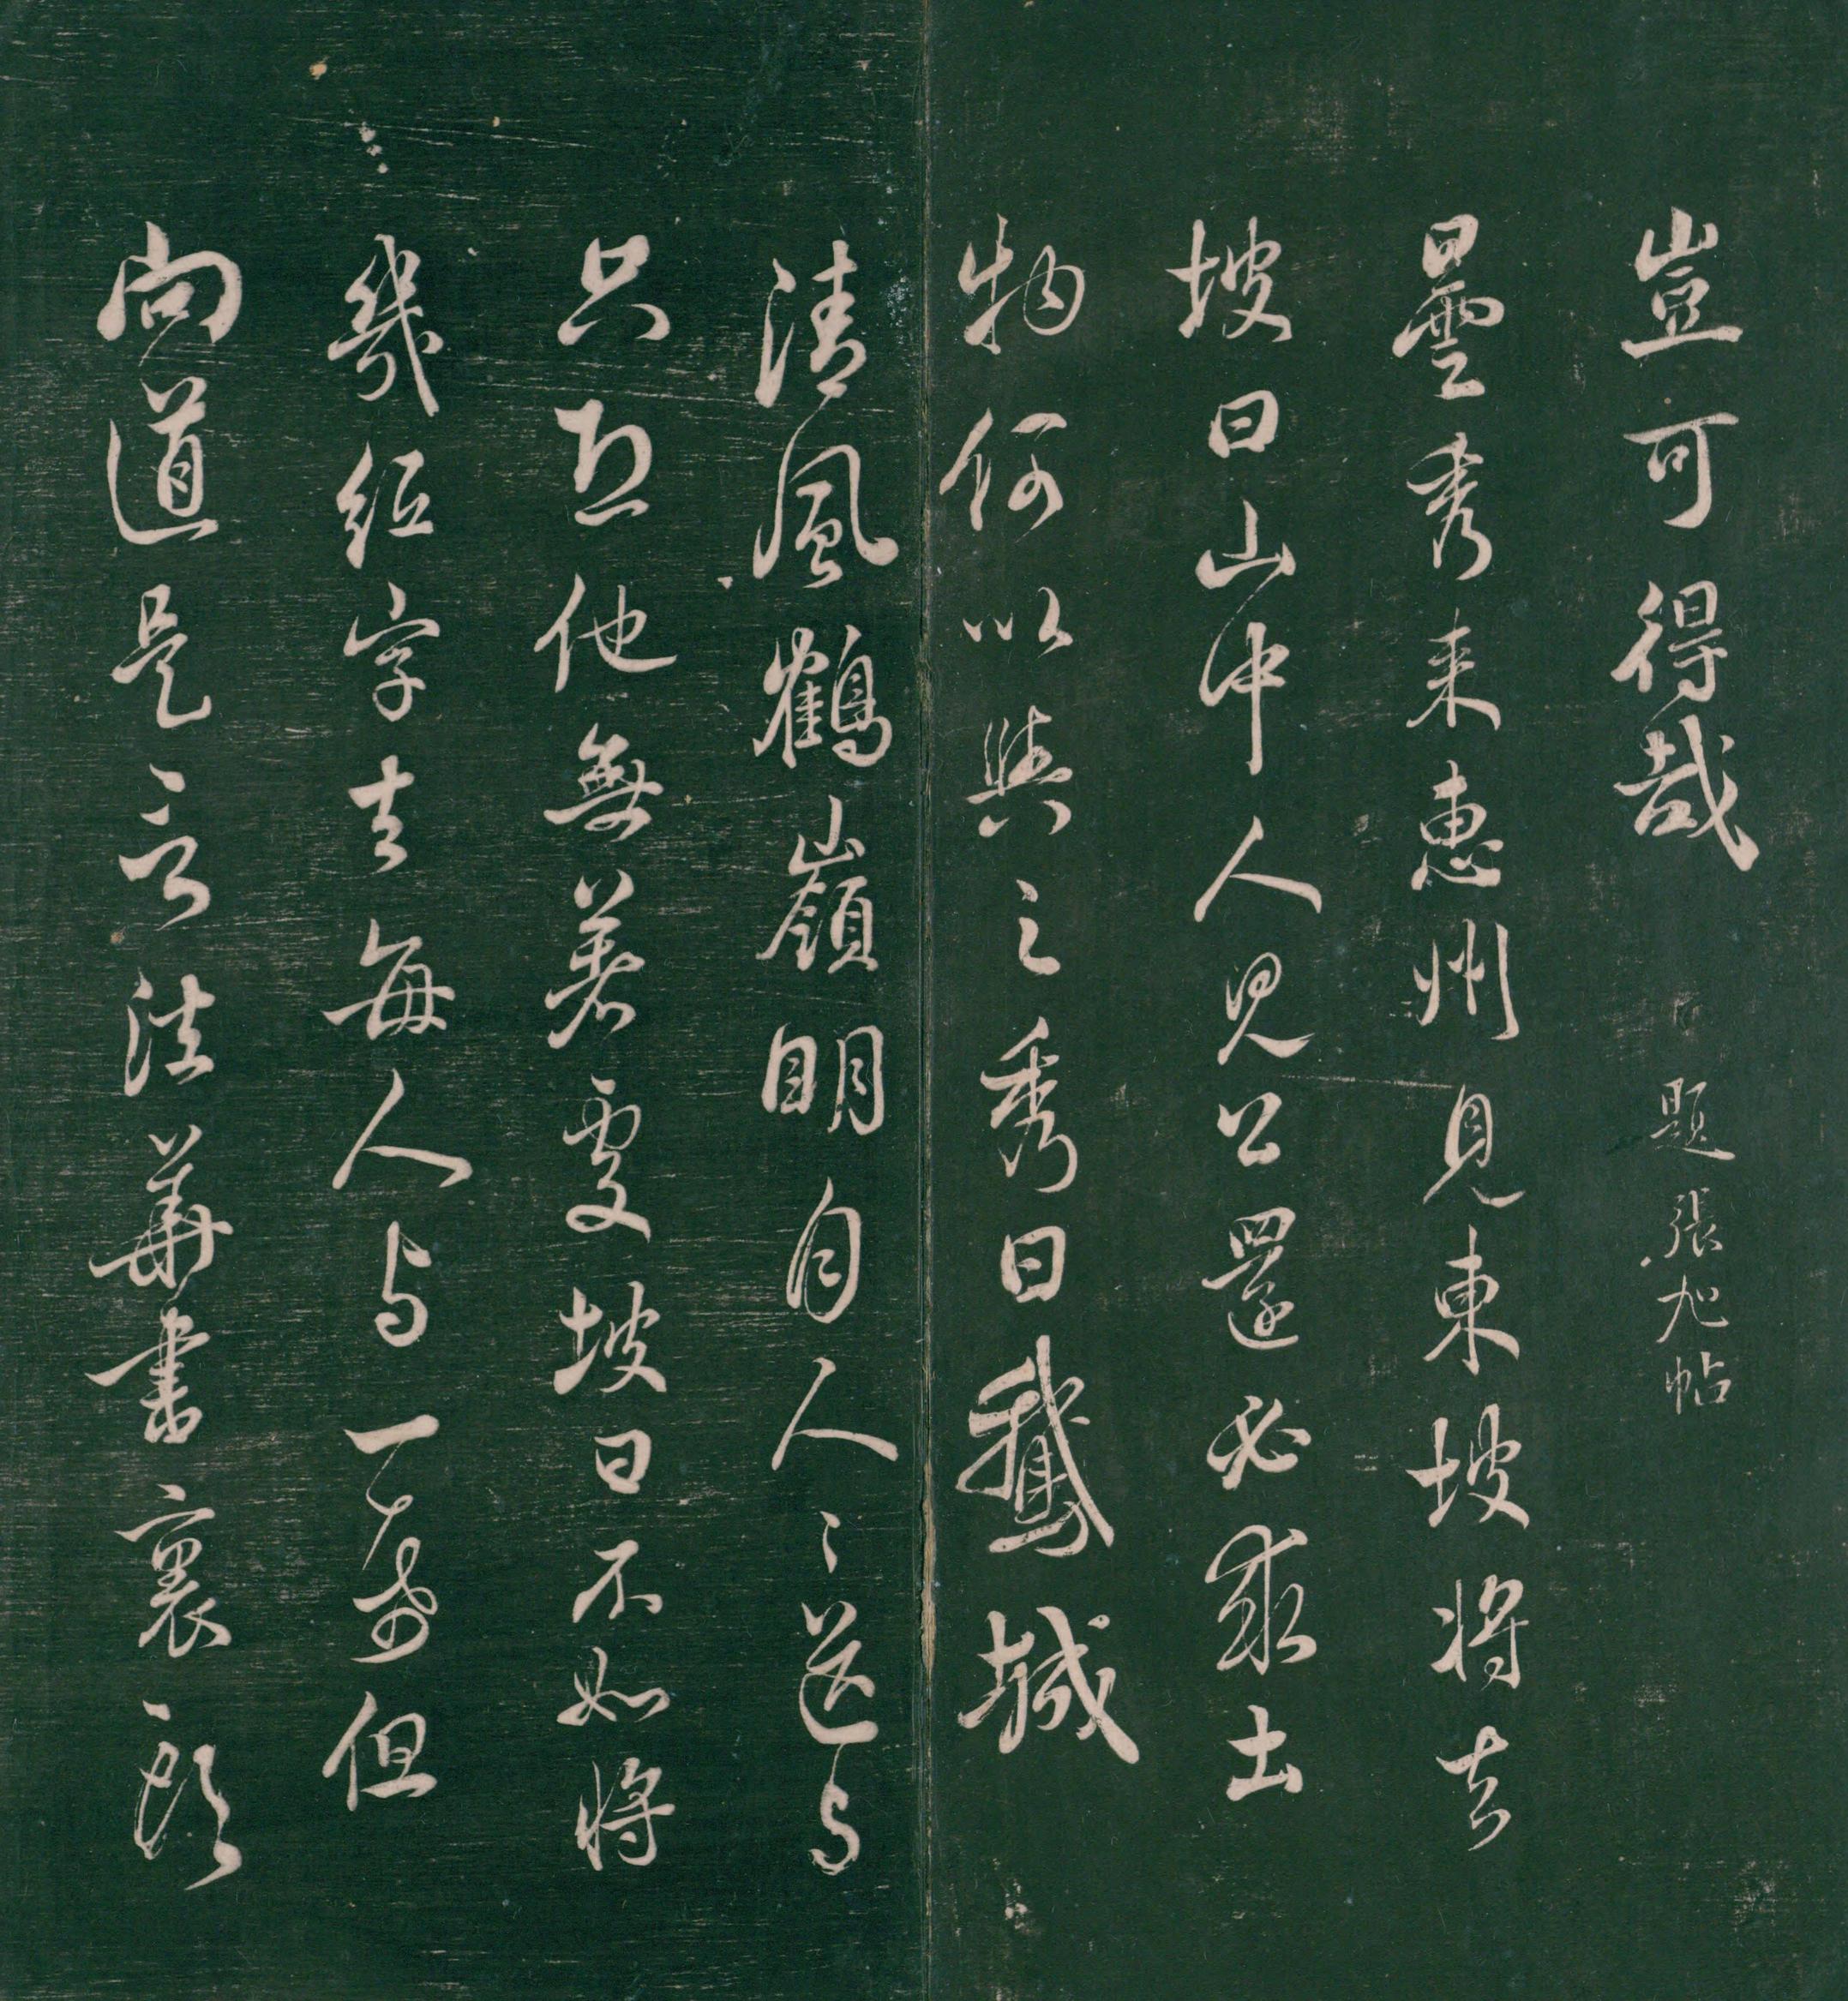 豈可得哉 題張旭帖
曇秀来惠州見東坡将去
坡曰山中人見公還必求土
物何以與之秀曰鵝城
清風鶴嶺明月人〻送与
只恐他無著處坡曰不如将
幾紙字去每人与一本但
向道是言法華書裏頭